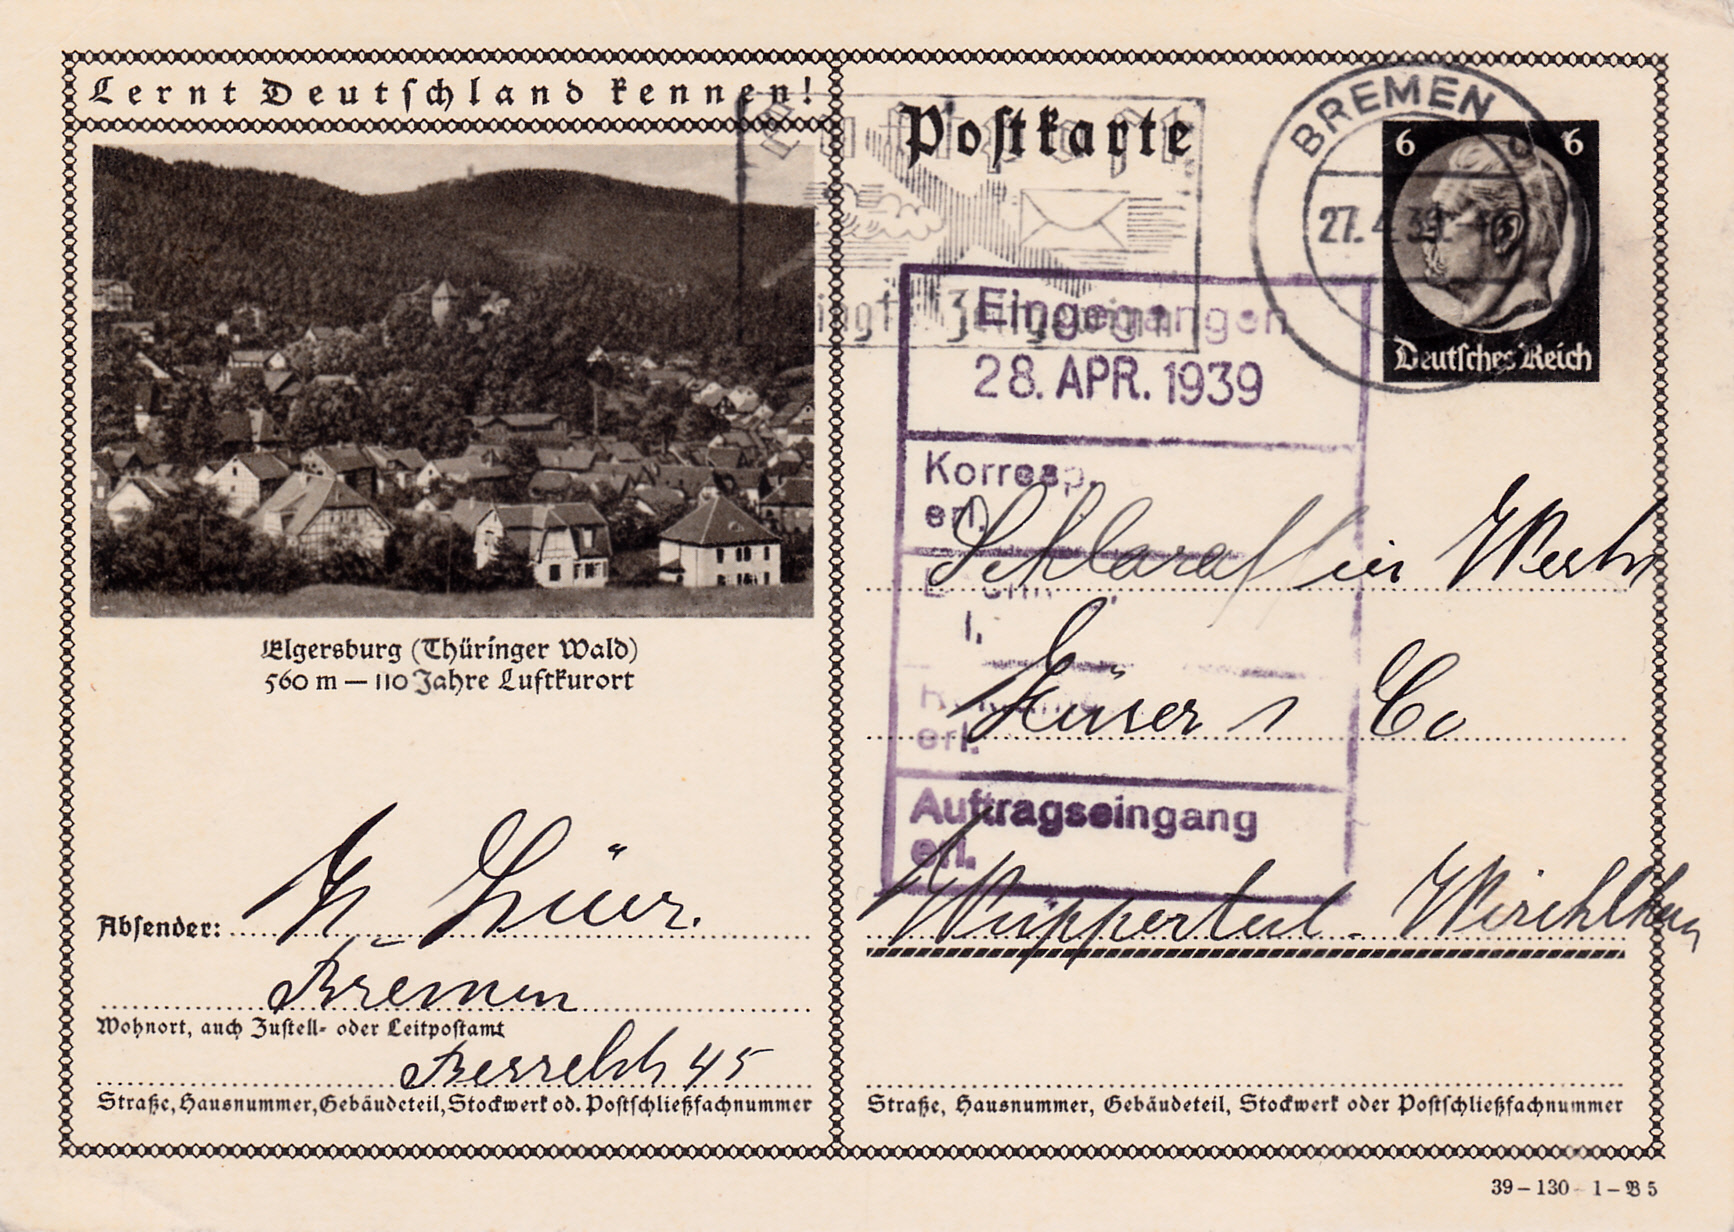 Lernt Deutschland kennen!
Elgersburg (Thüringer Wald)
560 m — 110 Jahre Luftkurort
Absender:
Bremen
Wohnort, auch Zustell- oder Leitpostamt
45
Straße, Hausnummer, Gebäudeteil, Stockwerk od. Postschließfachnummer
Postkarte
BREMEN
27.4.39
6 6
Deutsches Reich
Eingegangen
28. APR. 1939
Korresp.
erl.
erl.
Auftragseingang
erl.
Schlaraffia Werke
Hüser & Co
Wuppertal-
Straße, Hausnummer, Gebäudeteil, Stockwerk oder Postschließfachnummer
39-130-1-B 5